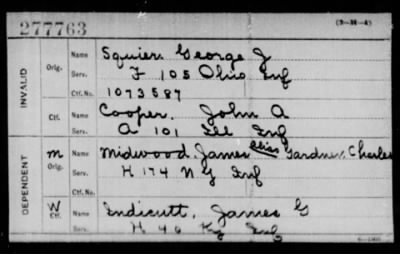 277763
(3-24-4)
INVALID
Orig. Name Squier, George J
Serv. F 105 Ohio Inf
Ctf. No. 1073587
Ctf. Name Cooper, John A
Serv. A 101 Ill Inf
DEPENDENT
M Orig. Name Midwood, James alias Gardner, Charles
Serv. H 174 N Y Inf
Ctf. No.
W Ctf. Name Endicutt, James G
Serv. H 40 Ky Inf